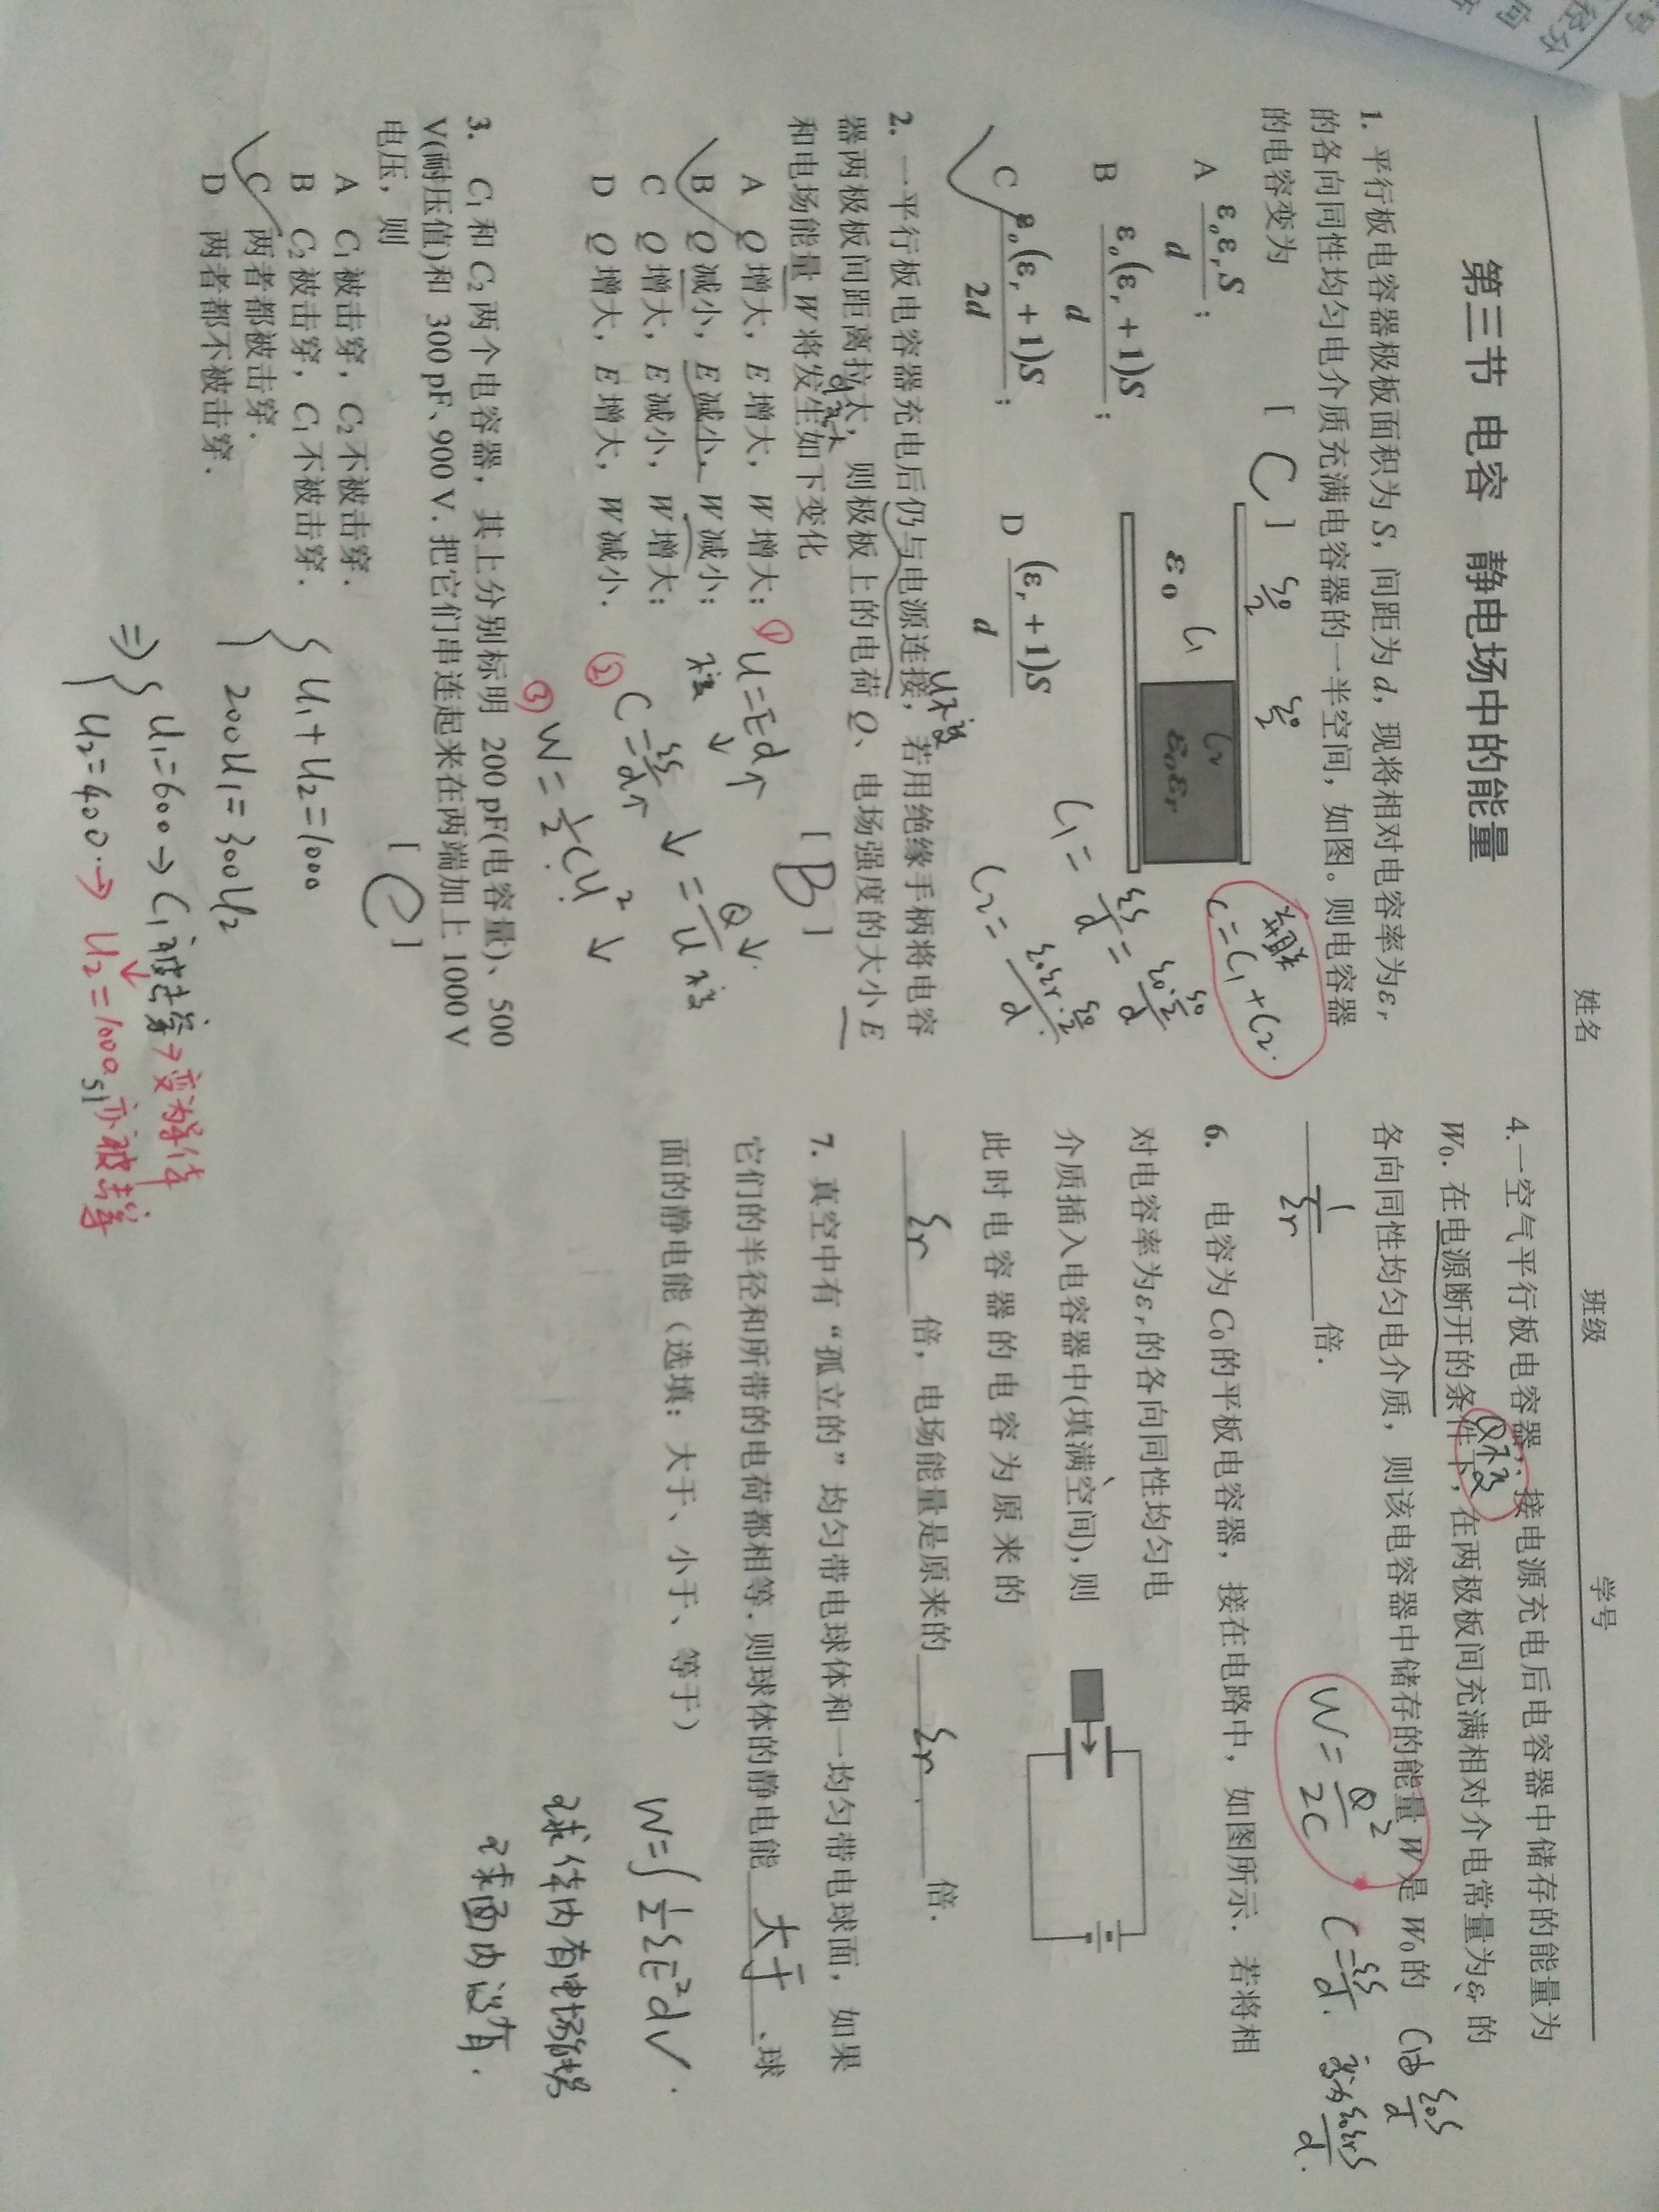 姓名 班级 学号
第三节 电容 静电场中的能量
1. 平行板电容器极板面积为 S，间距为 d，现将相对电容率为 εr
的各向同性均匀电介质充满电容器的一半空间，如图。则电容器
的电容变为 [ C ]
A ε₀εrS/d ;
B ε₀(εr+1)S/d ;
C ε₀(εr+1)S/2d ;
D (εr+1)S/d
ε₀ C₁
C₂ ε₀εr
S₀/2 S₀/2
并联
C=C₁+C₂.
C₁ = εS/d = ε₀·S₀/2/d
C₂ = ε₀εr·S₀/2/d.
2. 一平行板电容器充电后仍与电源连接，若用绝缘手柄将电容
U不变
器两极板间距离拉大，则极板上的电荷 Q、电场强度的大小 E
d变大
和电场能量 W 将发生如下变化 [ B ]
A Q 增大，E 增大，W 增大;
B Q 减小，E 减小，W 减小;
C Q 增大，E 减小，W 增大;
D Q 增大，E 增大，W 减小.
① U=Ed↑
不变 ↓
② C=εS/d↑ ↓ = Q↓/U不变
③ W=½CU² ↓
3. C₁ 和 C₂ 两个电容器，其上分别标明 200 pF(电容量)、500
V(耐压值)和 300 pF、900 V. 把它们串连起来在两端加上 1000 V
电压，则 [ C ]
A C₁ 被击穿，C₂ 不被击穿.
B C₂ 被击穿，C₁ 不被击穿.
C 两者都被击穿.
D 两者都不被击穿.
{ U₁+U₂=1000
200U₁=300U₂
⇒ { U₁=600 → C₁被击穿 → 变为导体
U₂=400. → U₂=1000 亦被击穿
4.一空气平行板电容器，接电源充电后电容器中储存的能量为
Q不变
W₀. 在电源断开的条件下，在两极板间充满相对介电常量为εr 的
各向同性均匀电介质，则该电容器中储存的能量 W 是 W₀ 的
1/εr 倍.
W=Q²/2C
C=εS/d.
C由 ε₀S/d
变为 ε₀εrS/d.
6. 电容为 C₀ 的平板电容器，接在电路中，如图所示. 若将相
对电容率为 εr 的各向同性均匀电
介质插入电容器中(填满空间)，则
此时电容器的电容为原来的
εr 倍，电场能量是原来的 εr 倍.
7. 真空中有“孤立的”均匀带电球体和一均匀带电球面，如果
它们的半径和所带的电荷都相等. 则球体的静电能 大于 球
面的静电能（选填：大于、小于、等于）
W=∫½εE²dV.
球体内有电场能
球面内没有.